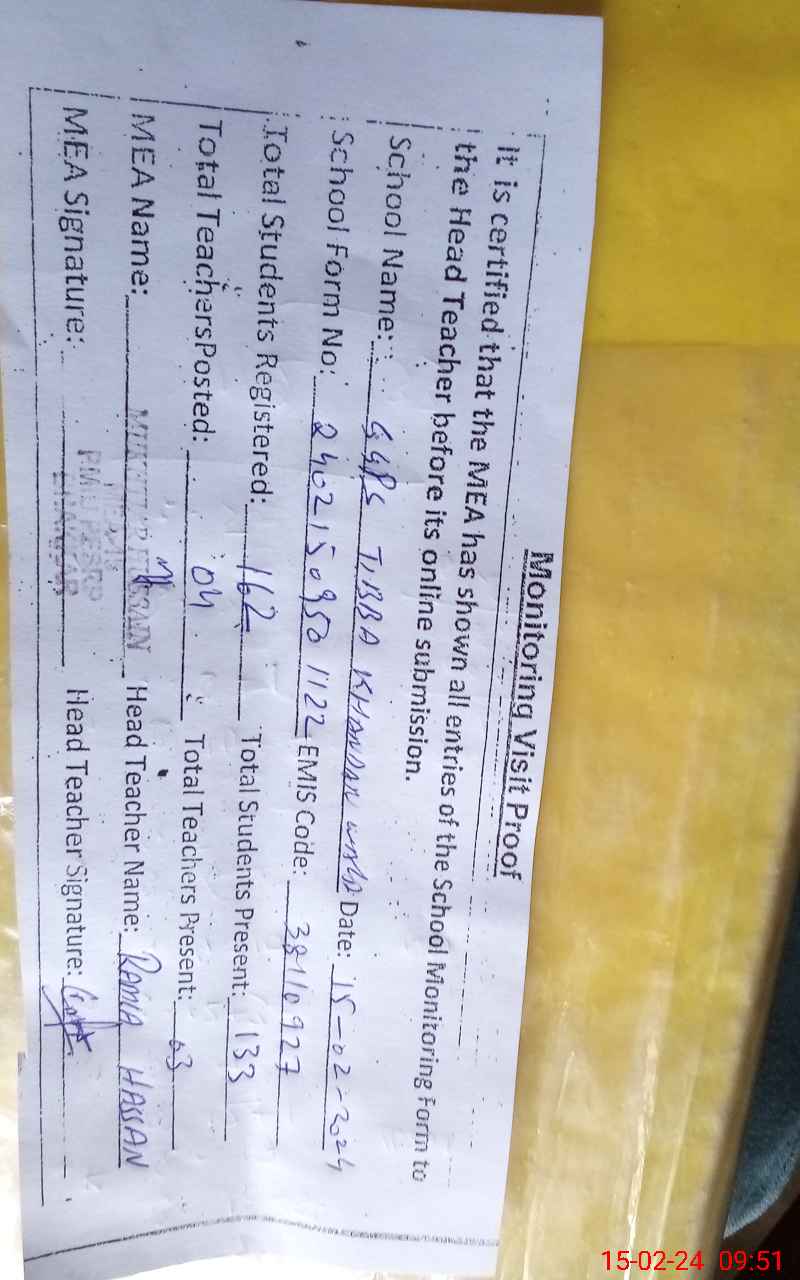 Monitoring Visit Proof
It is certified that the MEA has shown all entries of the School Monitoring Form to
the Head Teacher before its online submission.
School Name: GGPS TIBBA KHANDAN WALA Date: 15-02-2024
School Form No: 2402150950 1122 EMIS Code: 38110927
Total Students Registered: 162 Total Students Present: 133
Total Teachers Posted: 04 Total Teachers Present: 03
MEA Name: MUKHTAR HUSSAIN Head Teacher Name: RAMIA HASSAN
MEA Signature: Head Teacher Signature:
15-02-24 09:51